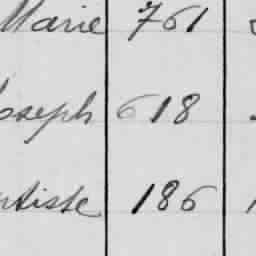 Marie 761
Joseph 618
186